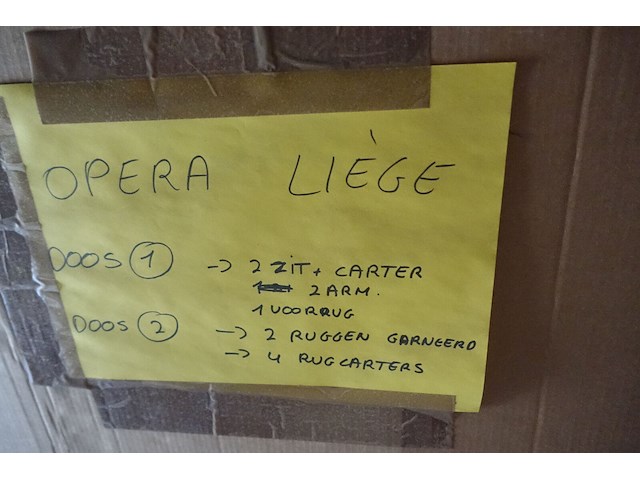 OPERA LIÈGE
DOOS 1 -> 2 ZIT + CARTER
2 ARM.
1 VOORRUG
DOOS 2 -> 2 RUGGEN GARNEERD
-> 4 RUGCARTERS